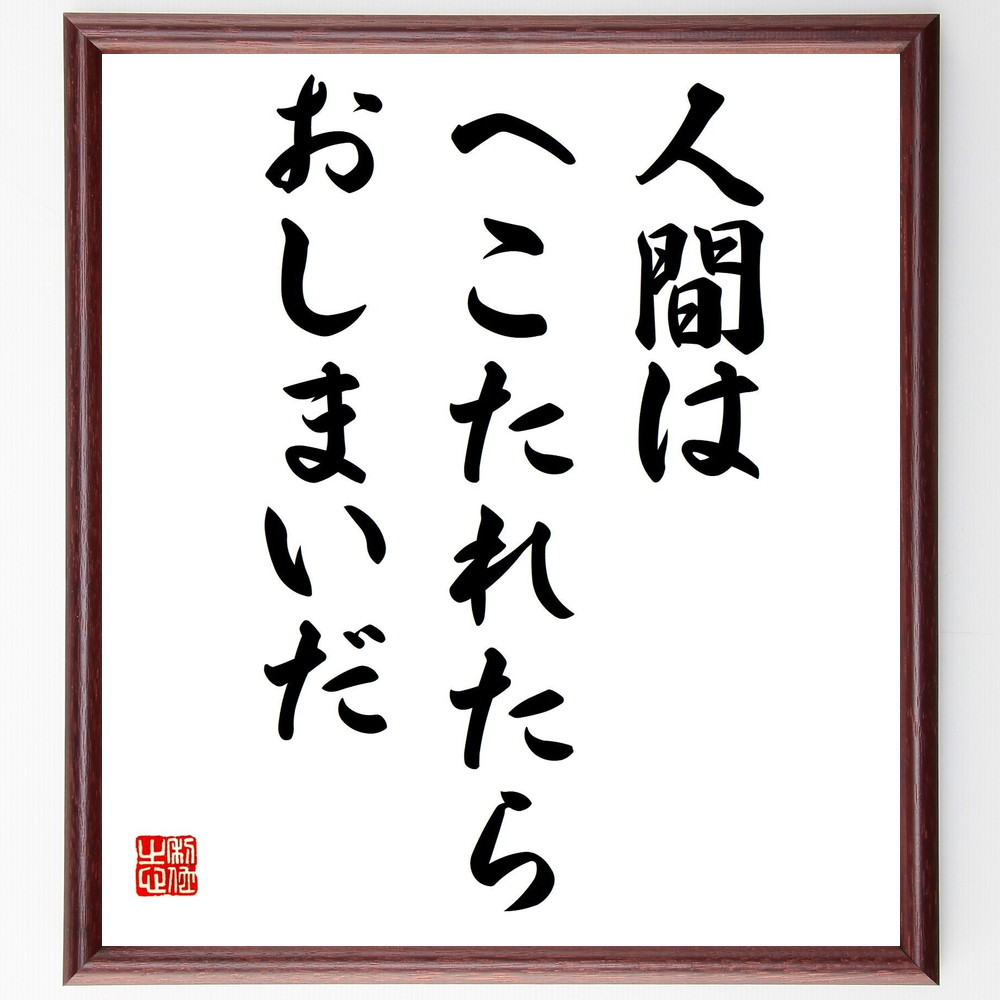 人間は
へこたれたら
おしまいだ